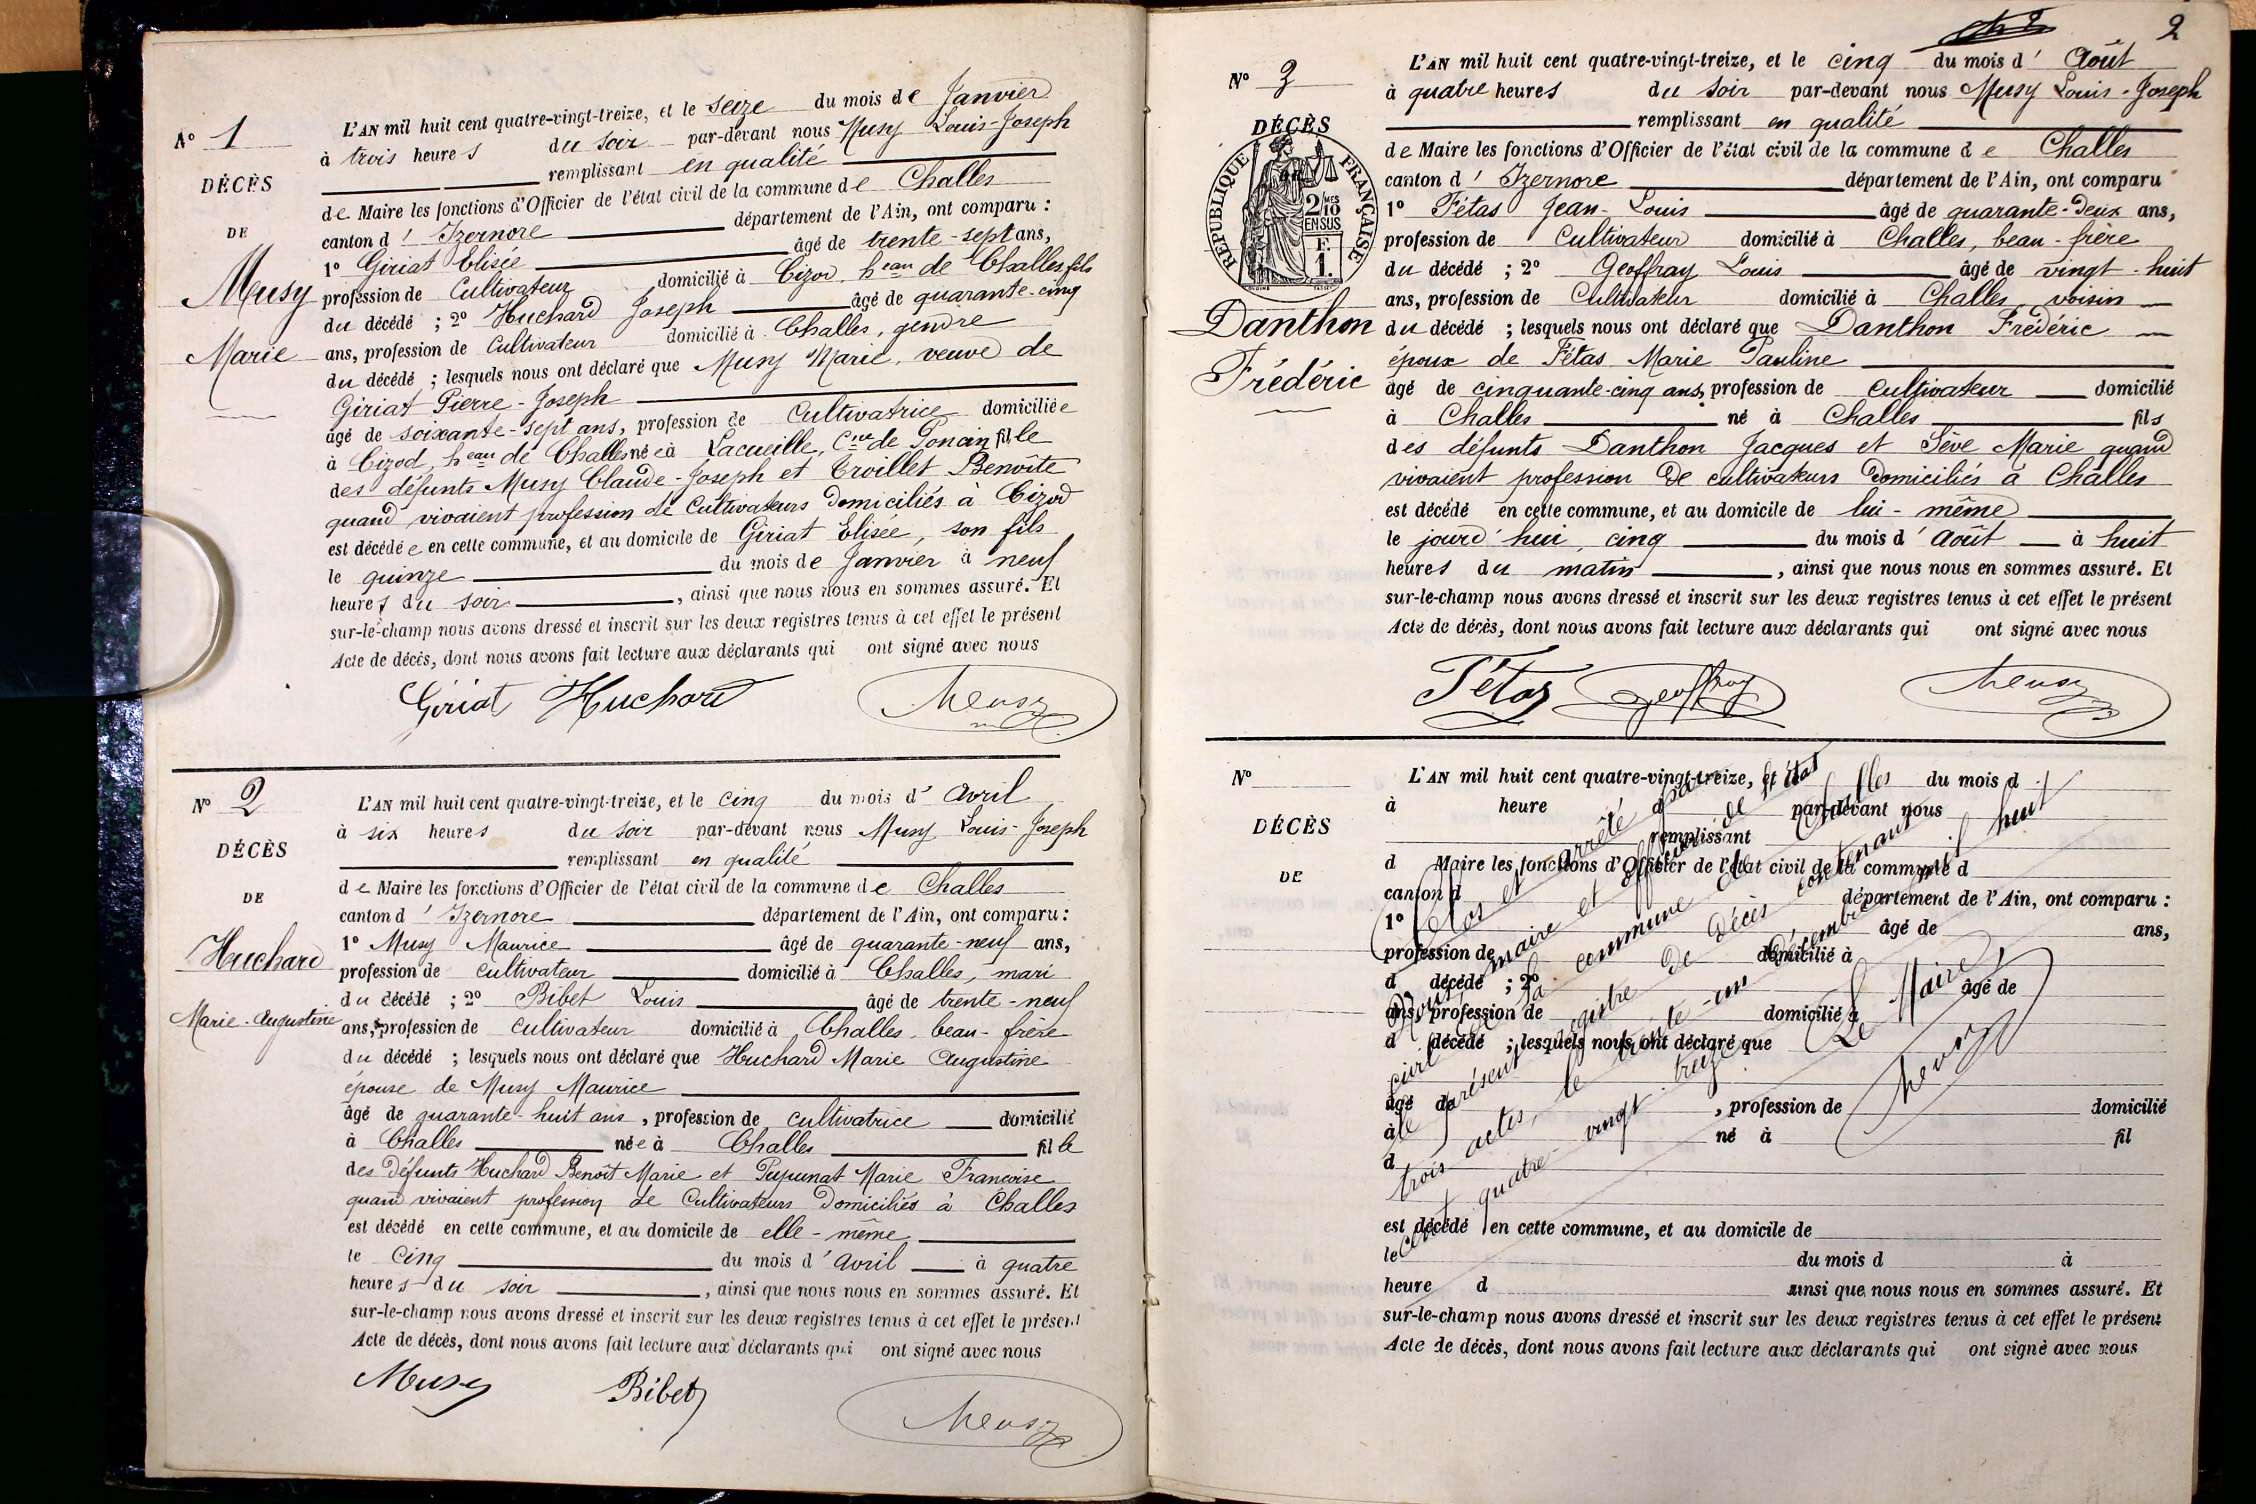 Nº 1
DÉCÈS
DE
Musy
Marie
L'AN mil huit cent quatre-vingt-treize, et le seize du mois de Janvier
à trois heures du soir par-devant nous Musy Louis-Joseph
remplissant en qualité
de Maire les fonctions d'Officier de l'état civil de la commune de Challes
canton d' Izernore département de l'Ain, ont comparu :
1º Giriat Elisée âgé de trente-sept ans,
profession de Cultivateur domicilié à Cizod, heau de Challes, fils
du décédé ; 2º Huchard Joseph âgé de quarante-cinq
ans, profession de Cultivateur domicilié à Challes, gendre
du décédé ; lesquels nous ont déclaré que Musy Marie, veuve de
Giriat Pierre-Joseph
âgé de soixante-sept ans, profession de Cultivatrice domiciliée
à Cizod, heau de Challes née à Lacueille, Cne de Poncin fille
des défunts Musy Claude-Joseph et Troillet Benoîte
quand vivaient profession de Cultivateurs domiciliés à Cizod
est décédée en cette commune, et au domicile de Giriat Elisée, son fils
le quinze du mois de Janvier à neuf
heures du soir, ainsi que nous nous en sommes assuré. Et
sur-le-champ nous avons dressé et inscrit sur les deux registres tenus à cet effet le présent
Acte de décès, dont nous avons fait lecture aux déclarants qui ont signé avec nous
Giriat Huchard Musy
Nº 2
DÉCÈS
DE
Huchard
Marie-Augustine
L'AN mil huit cent quatre-vingt-treize, et le cinq du mois d' Avril
à six heures du soir par-devant nous Musy Louis-Joseph
remplissant en qualité
de Maire les fonctions d'Officier de l'état civil de la commune de Challes
canton d' Izernore département de l'Ain, ont comparu :
1º Musy Maurice âgé de quarante-neuf ans,
profession de cultivateur domicilié à Challes, mari
du décédé ; 2º Bibet Louis âgé de trente-neuf
ans, profession de cultivateur domicilié à Challes, beau-frère
du décédé ; lesquels nous ont déclaré que Huchard Marie Augustine
épouse de Musy Maurice
âgé de quarante-huit ans, profession de cultivatrice domicilié
à Challes née à Challes fille
des défunts Huchard Benoît Marie et Pupunat Marie Françoise
quand vivaient profession de Cultivateurs domiciliés à Challes
est décédé en cette commune, et au domicile de elle-même
le cinq du mois d' avril à quatre
heures du soir, ainsi que nous nous en sommes assuré. Et
sur-le-champ nous avons dressé et inscrit sur les deux registres tenus à cet effet le présent
Acte de décès, dont nous avons fait lecture aux déclarants qui ont signé avec nous
Musy Bibet Musy
2
Nº 3
DÉCÈS
RÉPUBLIQUE FRANÇAISE
2/10 MES
EN SUS
F.
1.
Danthon
Frédéric
L'AN mil huit cent quatre-vingt-treize, et le cinq du mois d' Août
à quatre heures du soir par-devant nous Musy Louis-Joseph
remplissant en qualité
de Maire les fonctions d'Officier de l'état civil de la commune de Challes
canton d' Izernore département de l'Ain, ont comparu
1º Fétas Jean-Louis âgé de quarante-deux ans,
profession de Cultivateur domicilié à Challes, beau-frère
du décédé ; 2º Geoffray Louis âgé de vingt-huit
ans, profession de Cultivateur domicilié à Challes, voisin
du décédé ; lesquels nous ont déclaré que Danthon Frédéric
époux de Fétas Marie Pauline
âgé de cinquante-cinq ans, profession de cultivateur domicilié
à Challes né à Challes fils
des défunts Danthon Jacques et Sève Marie quand
vivaient profession de cultivateurs domiciliés à Challes
est décédé en cette commune, et au domicile de lui-même
le jourd'hui, cinq du mois d' Août à huit
heures du matin, ainsi que nous nous en sommes assuré. Et
sur-le-champ nous avons dressé et inscrit sur les deux registres tenus à cet effet le présent
Acte de décès, dont nous avons fait lecture aux déclarants qui ont signé avec nous
Fétas Geoffray Musy
Nº
DÉCÈS
DE
L'AN mil huit cent quatre-vingt-treize, et le du mois d
à heure par-devant nous
remplissant
d Maire les fonctions d'Officier de l'état civil de la commune d
canton d département de l'Ain, ont comparu :
1º âgé de ans,
profession de domicilié à
d décédé ; 2º âgé de
ans, profession de domicilié à
d décédé ; lesquels nous ont déclaré que
âgé de , profession de domicilié
à né à fil
d
est décédé en cette commune, et au domicile de
le du mois d à
heure d ainsi que nous nous en sommes assuré. Et
sur-le-champ nous avons dressé et inscrit sur les deux registres tenus à cet effet le présent
Acte de décès, dont nous avons fait lecture aux déclarants qui ont signé avec nous
Clos et arrêté par
Nous maire et officier de l'état
civil de la commune de Challes
le présent registre de Décès contenant
trois actes, le trente-un décembre mil huit
cent quatre-vingt-treize
Le Maire,
Musy